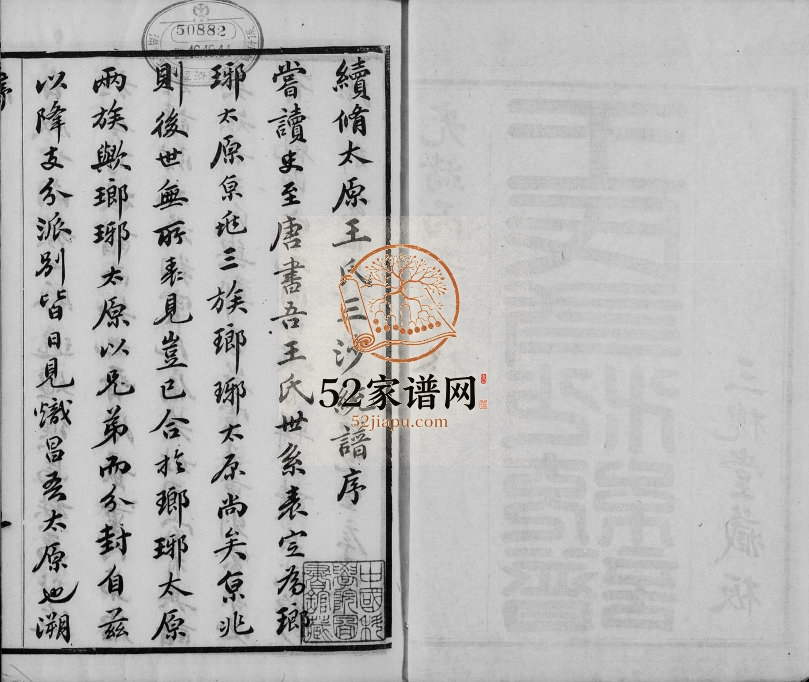 續脩太原王氏三沙統譜序
嘗讀史至唐書吾王氏世系表定為瑯
琊太原京兆三族瑯琊太原尚矣京兆
則後世無所表見豈已合於瑯琊太原
兩族歟瑯琊太原以兄弟而分封自茲
以降支分派別皆日見熾昌吾太原也溯
序
50882
中國科學院圖書館藏
52家谱网
52jiapu.com
藏板